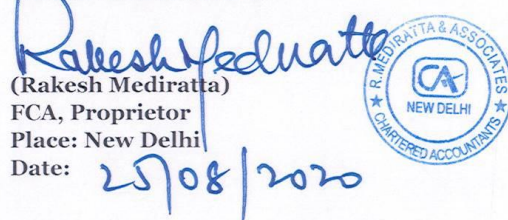 Rakesh Mediratta
(Rakesh Mediratta)
FCA, Proprietor
Place: New Delhi
Date: 25/08/2020
R. MEDIRATTA & ASSOCIATES
CA
NEW DELHI
CHARTERED ACCOUNTANTS